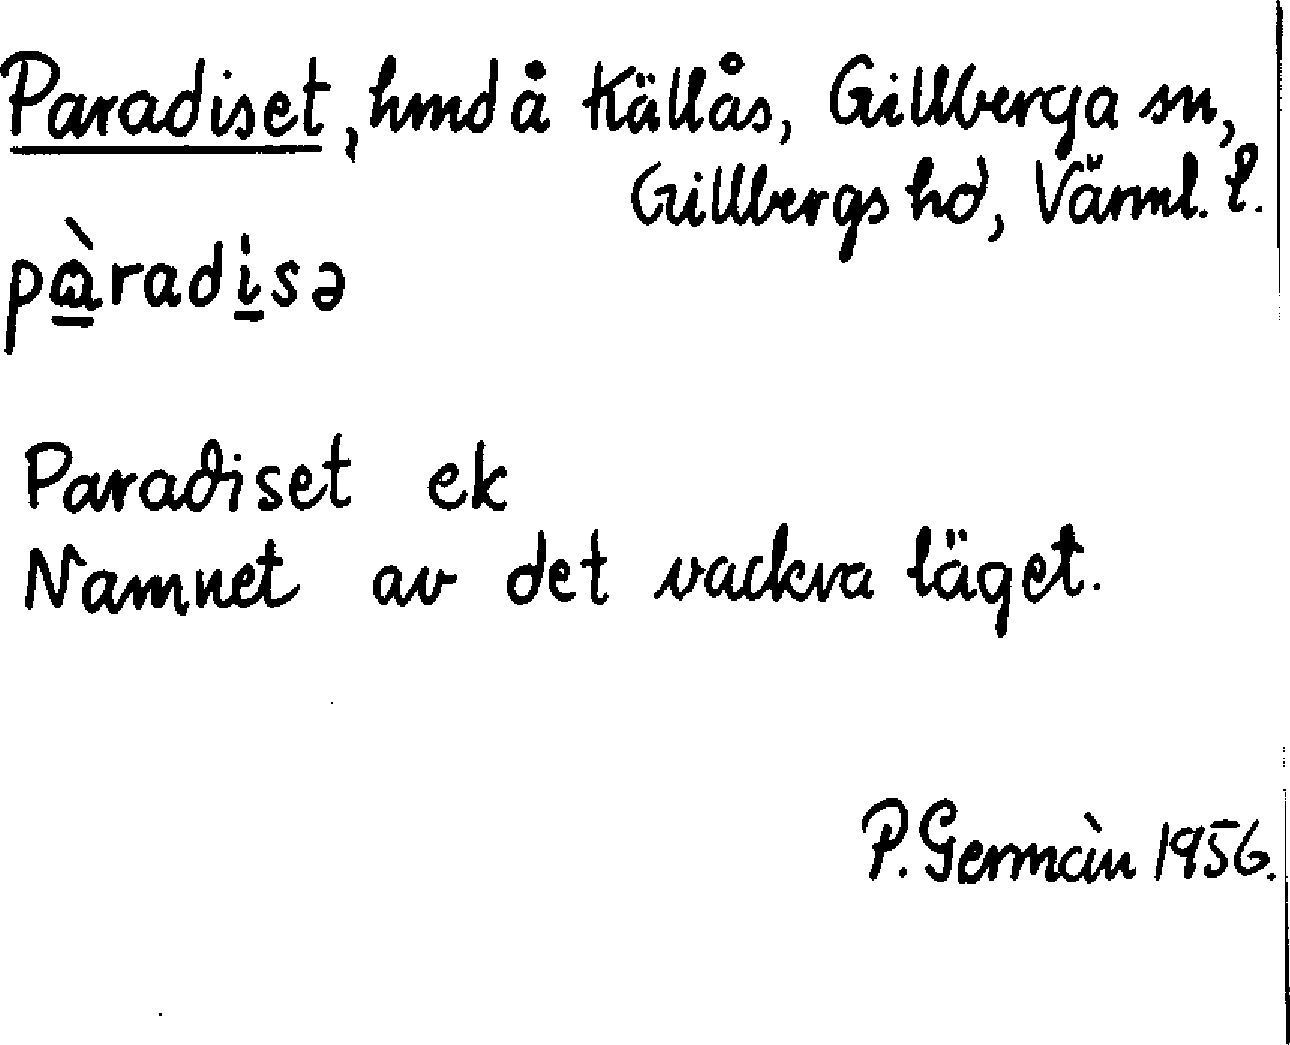 Paradiset, hmd å Källås, Gillberga sn,
Gillbergs hd, Värml. l.
pàradisə
Paradiset ek
Namnet av det vackra läget.
P. Germàn 1956.